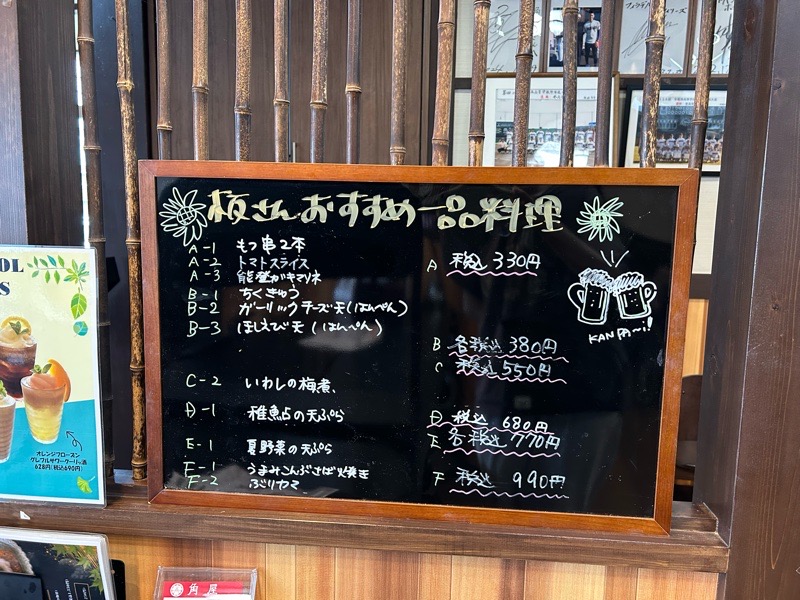 板さんおすすめ一品料理
A-1 もつ串2本
A-2 トマトスライス
A-3 能登がキマリネ
A 税込 330円
B-1 ちくきゅう
B-2 ガーリックチーズ天(はんぺん)
B-3 ほしえび天(はんぺん)
B 各税込 380円
C-2 いわしの梅煮、
C 税込 550円
D-1 稚魚点の天ぷら
D 税込 680円
E-1 夏野菜の天ぷら
E 各税込 770円
F-1 うまみこんぶさば焼き
F-2 ぶりカマ
F 税込 990円
KANPA〜i!
オレンジフローズン
628円(税込690円)
角屋